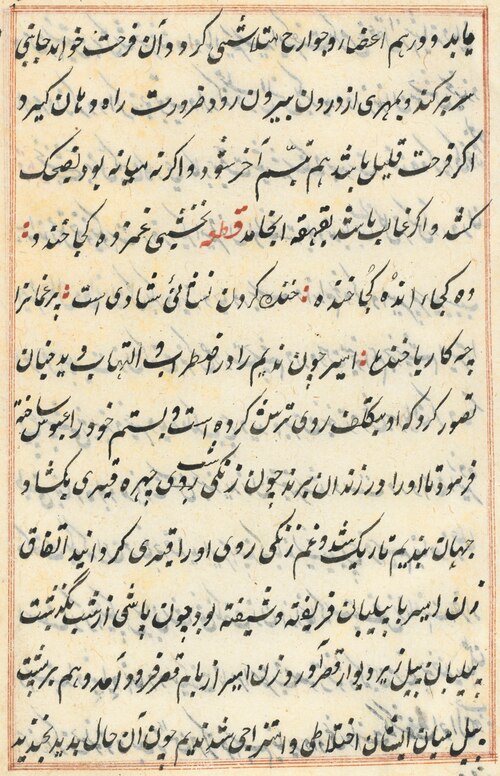 یابد و در هم اعضا و جوارح متلاشی کردد و آن فرحت خواهد جانبی
سر بر کند و بهری از درون بیرون رود ضرورت راه دهان کیرد و
اکر فرحت قلیل باشد هم تبسّم آخر شود و اکر نه میانه بود بضحک
کشد و اکر غالب باشد بقهقهه انجامد قطعه نخشبی غمزده کجا خندد :
وه کجا، اندُه کجا خنده : خنده کردن نشانیٔ شادی است : پر غمانرا
چه کار با خنده : امیر چون ندیم را در اضطراب و التهاب دید چنان
تصور کرد که او بتکلف روی ترش کرده است و بستم خود را عبوس ساخته
فرمود تا او را در زندان برند چون زنکی شب روی چهره قیری بکشاد
جهان بندیم تاریک شد و غم زنکی روی او را قیری کردانید اتفاق
زن امیر با پیلبان فریفته و شیفته بود چون پاشی از شب بگذشت
پیلبان پیل زیر دیوار قصر آورد زن امیر از بام قصر فرود آمد و هم بر پشت
پیل میان ایشان اختلاطی و امتزاجی شد ندیم چون آن حال بدید بخندید